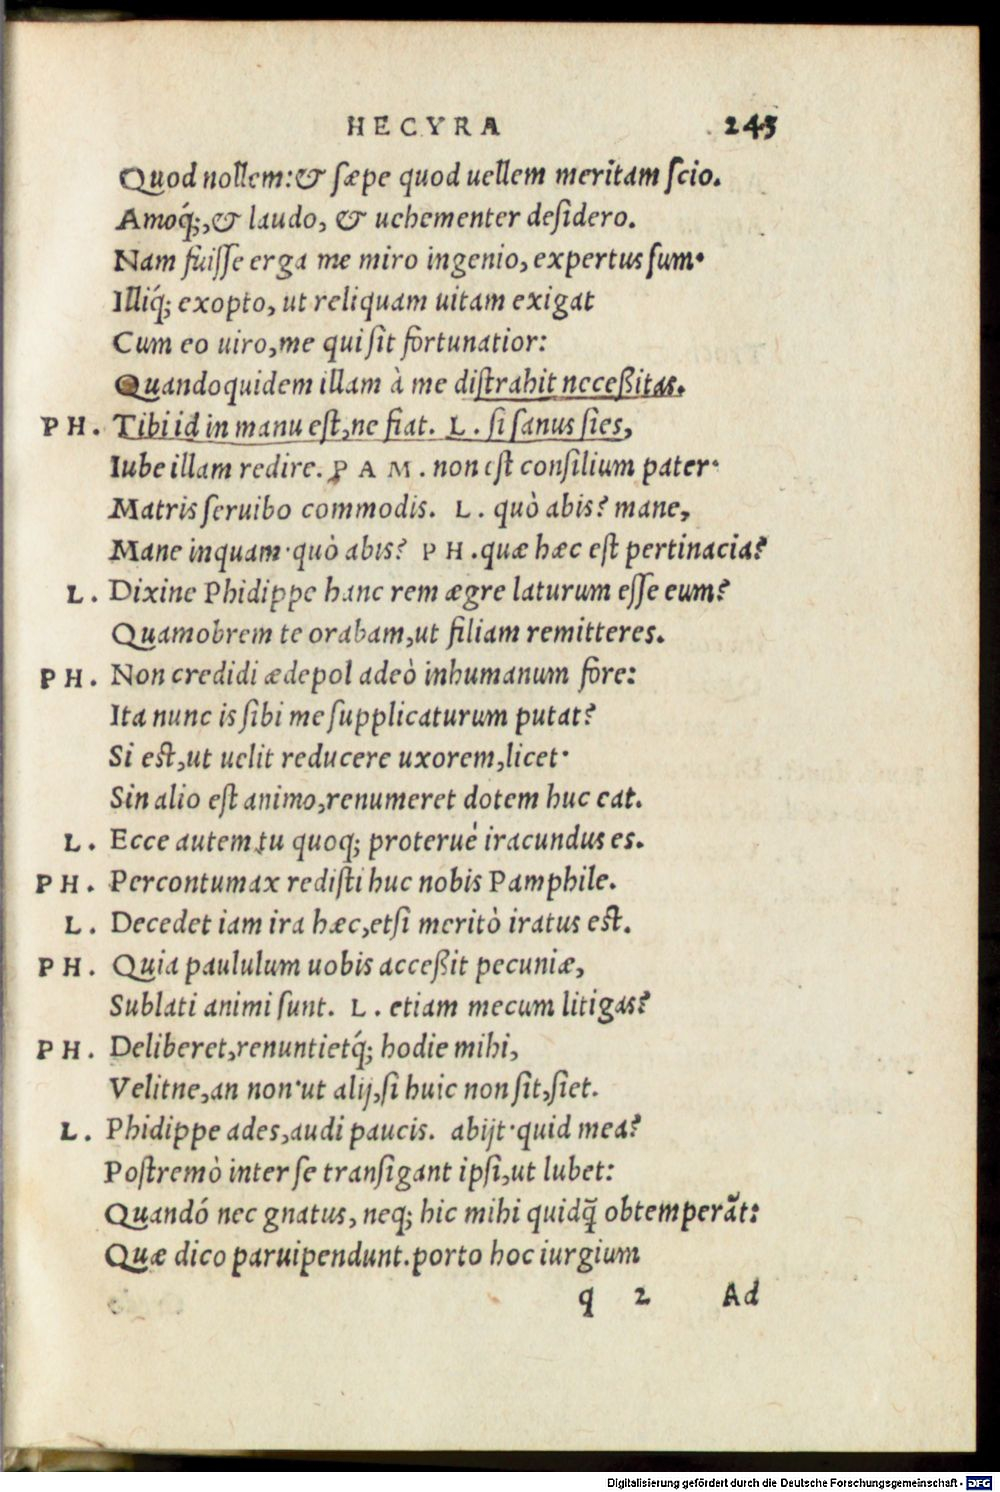 HECYRA 243
Quod nollem: & sæpe quod uellem meritam scio.
Amoq́;, & laudo, & uehementer desidero.
Nam fuisse erga me miro ingenio, expertus sum.
Illiq́; exopto, ut reliquam uitam exigat
Cum eo uiro, me qui sit fortunatior:
Quandoquidem illam à me distrahit neceßitas.
PH. Tibi id in manu est, ne fiat. L. si sanus sies,
Iube illam redire. PAM. non est consilium pater.
Matris seruibo commodis. L. quò abis? mane,
Mane inquam. quò abis? PH. quæ hæc est pertinacia?
L. Dixine Phidippe hanc rem ægre laturum esse eum?
Quamobrem te orabam, ut filiam remitteres.
PH. Non credidi ædepol adeò inhumanum fore:
Ita nunc is sibi me supplicaturum putat?
Si est, ut uelit reducere uxorem, licet.
Sin alio est animo, renumeret dotem huc eat.
L. Ecce autem tu quoq; proteruè iracundus es.
PH. Percontumax redisti huc nobis Pamphile.
L. Decedet iam ira hæc, etsi meritò iratus est.
PH. Quia paululum uobis acceßit pecuniæ,
Sublati animi sunt. L. etiam mecum litigas?
PH. Deliberet, renuntietq́; hodie mihi,
Velitne, an non. ut alij, si huic non sit, siet.
L. Phidippe ades, audi paucis. abijt. quid mea?
Postremò inter se transigant ipsi, ut lubet:
Quandó nec gnatus, neq; hic mihi quidq̃ obtemperãt:
Quæ dico paruipendunt. porto hoc iurgium
q 2 Ad
Digitalisierung gefördert durch die Deutsche Forschungsgemeinschaft - DFG